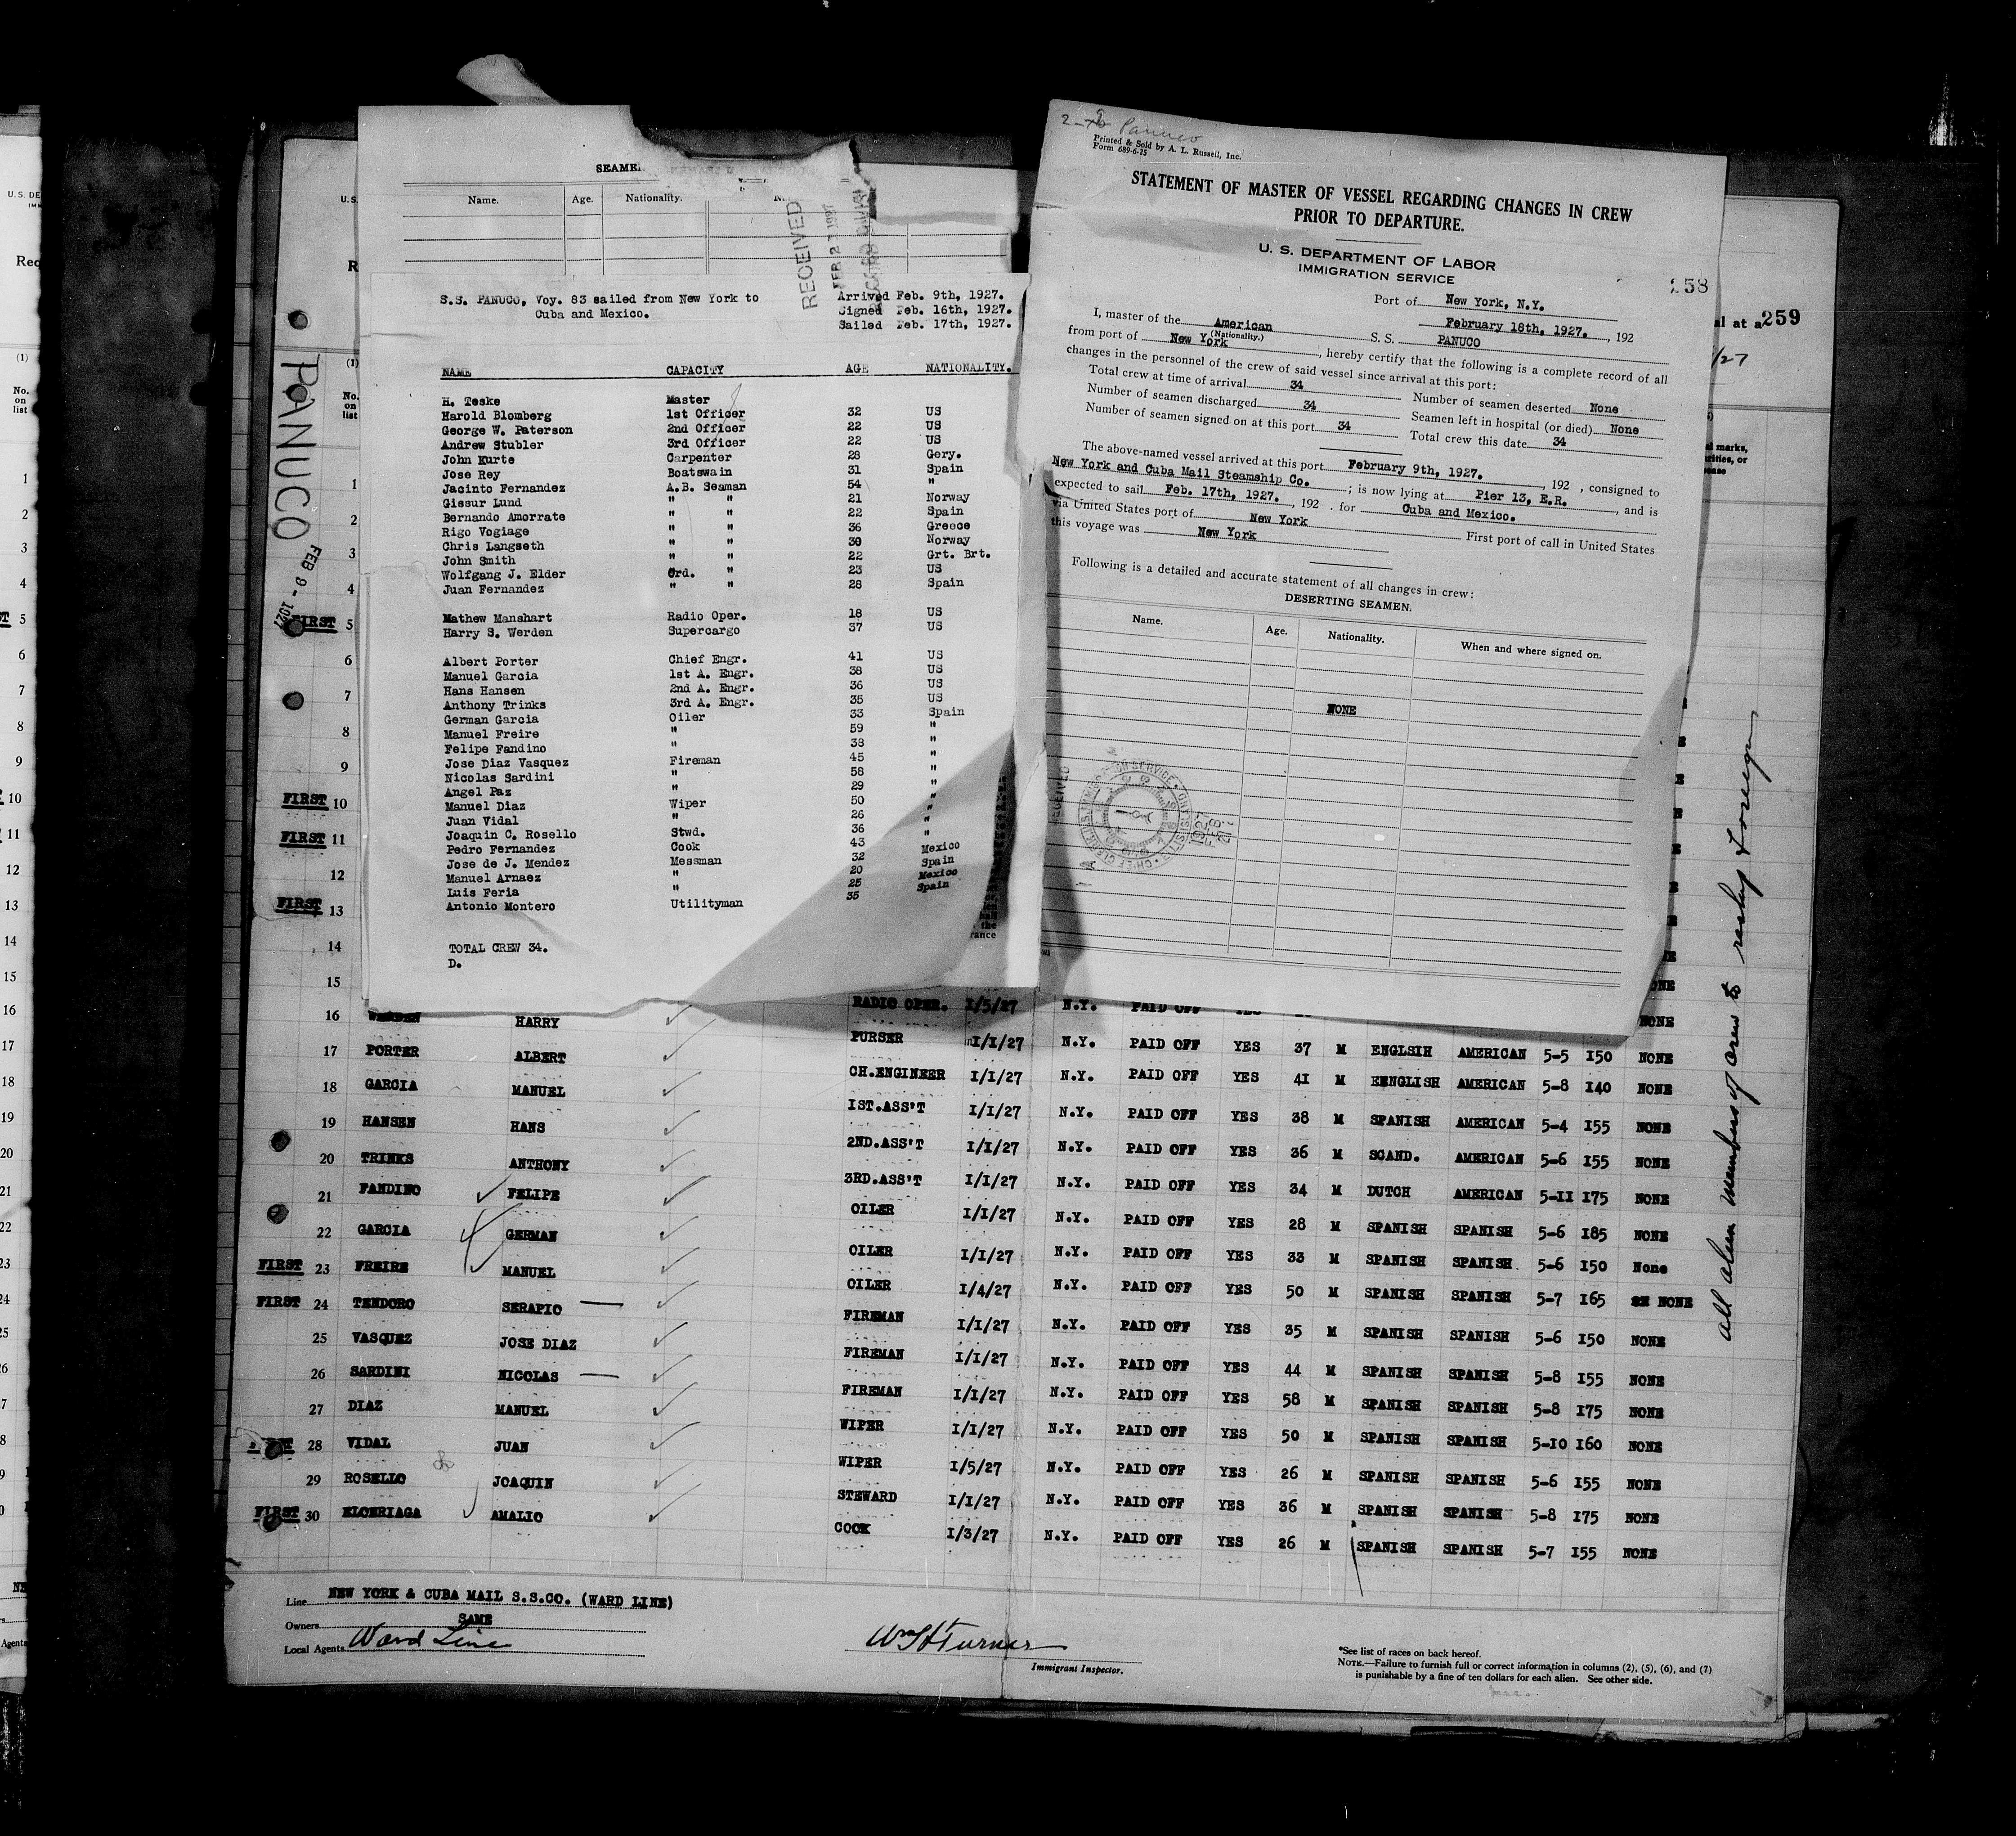 SEAME
Name. Age. Nationality.
RECEIVED
FEB 21 1927
S.S. PANUCO, Voy. 83 sailed from New York to Cuba and Mexico.
Arrived Feb. 9th, 1927.
Signed Feb. 16th, 1927.
Sailed Feb. 17th, 1927.
NAME CAPACITY AGE NATIONALITY.
H. Teske Master
Harold Blomberg 1st Officer 32 US
George W. Paterson 2nd Officer 22 US
Andrew Stubler 3rd Officer 22 US
John Kurte Carpenter 28 Gery.
Jose Rey Boatswain 31 Spain
Jacinto Fernandez A.B. Seaman 54 "
Gissur Lund " " 21 Norway
Bernando Amorrate " " 22 Spain
Rigo Vogiage " " 36 Greece
Chris Langseth " " 30 Norway
John Smith " " 22 Grt. Brt.
Wolfgang J. Elder Ord. " 23 US
Juan Fernandez " " 28 Spain
Mathew Manshart Radio Oper. 18 US
Harry S. Werden Supercargo 37 US
Albert Porter Chief Engr. 41 US
Manuel Garcia 1st A. Engr. 38 US
Hans Hansen 2nd A. Engr. 36 US
Anthony Trinks 3rd A. Engr. 35 US
German Garcia Oiler 33 Spain
Manuel Freire " 59 "
Felipe Fandino " 38 "
Jose Diaz Vasquez Fireman 45 "
Nicolas Sardini " 58 "
Angel Paz " 29 "
Manuel Diaz Wiper 50 "
Juan Vidal " 26 "
Joaquin C. Rosello Stwd. 36 "
Pedro Fernandez Cook 43 Mexico
Jose de J. Mendez Messman 32 Spain
Manuel Arnaez " 20 Mexico
Luis Feria " 25 Spain
Antonio Montero Utilityman 35
TOTAL CREW 34.
D.
2- Panuco
Printed & Sold by A. L. Russell, Inc.
Form 689-6-25
STATEMENT OF MASTER OF VESSEL REGARDING CHANGES IN CREW
PRIOR TO DEPARTURE.
U. S. DEPARTMENT OF LABOR
IMMIGRATION SERVICE
258
Port of New York, N.Y.
February 18th, 1927. , 192
I, master of the American S. S. PANUCO
(Nationality.)
from port of New York , hereby certify that the following is a complete record of all
changes in the personnel of the crew of said vessel since arrival at this port:
Total crew at time of arrival 34 Number of seamen deserted None
Number of seamen discharged 34 Seamen left in hospital (or died) None
Number of seamen signed on at this port 34 Total crew this date 34
The above-named vessel arrived at this port February 9th, 1927. , 192 , consigned to
New York and Cuba Mail Steamship Co. ; is now lying at Pier 13, E.R. , and is
expected to sail Feb. 17th, 1927. , 192 . for Cuba and Mexico.
via United States port of New York First port of call in United States
this voyage was New York
Following is a detailed and accurate statement of all changes in crew:
DESERTING SEAMEN.
Name. Age. Nationality. When and where signed on.
NONE
al at a 259
PANUCO
FEB 9 - 1927
U.S.
(1)
No.
on
list
1
2
3
4
FIRST 5
6
7
8
9
FIRST 10
FIRST 11
12
FIRST 13
14
15
RADIO OPER. 1/5/27 N.Y. PAID OFF NONE
16 HARRY PURSER 1/1/27 N.Y. PAID OFF YES 37 M ENGLSIH AMERICAN 5-5 150 NONE
17 PORTER ALBERT CH.ENGINEER 1/1/27 N.Y. PAID OFF YES 41 M EENGLISH AMERICAN 5-8 140 NONE
18 GARCIA MANUEL 1ST.ASS'T 1/1/27 N.Y. PAID OFF YES 38 M SPANISH AMERICAN 5-4 155 NONE
19 HANSEN HANS 2ND.ASS'T 1/1/27 N.Y. PAID OFF YES 36 M SCAND. AMERICAN 5-6 155 NONE
20 TRINKS ANTHONY 3RD.ASS'T 1/1/27 N.Y. PAID OFF YES 34 M DUTCH AMERICAN 5-11 175 NONE
21 FANDINO FELIPE OILER 1/1/27 N.Y. PAID OFF YES 28 M SPANISH SPANISH 5-6 185 NONE
22 GARCIA GERMAN OILER 1/1/27 N.Y. PAID OFF YES 33 M SPANISH SPANISH 5-6 150 None
FIRST 23 FREIRE MANUEL OILER 1/4/27 N.Y. PAID OFF YES 50 M SPANISH SPANISH 5-7 165 NONE
FIRST 24 TENDORO SERAPIO FIREMAN 1/1/27 N.Y. PAID OFF YES 35 M SPANISH SPANISH 5-6 150 NONE
25 VASQUEZ JOSE DIAZ FIREMAN 1/1/27 N.Y. PAID OFF YES 44 M SPANISH SPANISH 5-8 155 NONE
26 SARDINI NICOLAS FIREMAN 1/1/27 N.Y. PAID OFF YES 58 M SPANISH SPANISH 5-8 175 NONE
27 DIAZ MANUEL WIPER 1/1/27 N.Y. PAID OFF YES 50 M SPANISH SPANISH 5-10 160 NONE
FIRST 28 VIDAL JUAN WIPER 1/5/27 N.Y. PAID OFF YES 26 M SPANISH SPANISH 5-6 155 NONE
29 ROSELLO JOAQUIN STEWARD 1/1/27 N.Y. PAID OFF YES 36 M SPANISH SPANISH 5-8 175 NONE
FIRST 30 ELCERIAGA AMALIO COOK 1/3/27 N.Y. PAID OFF YES 26 M SPANISH SPANISH 5-7 155 NONE
All alien members of crew to reship foreign
Line NEW YORK & CUBA MAIL S.S.CO. (WARD LINE)
Owners SAME
Local Agents Ward Line
Wm H Turner
Immigrant Inspector.
*See list of races on back hereof.
NOTE.—Failure to furnish full or correct information in columns (2), (5), (6), and (7)
is punishable by a fine of ten dollars for each alien. See other side.